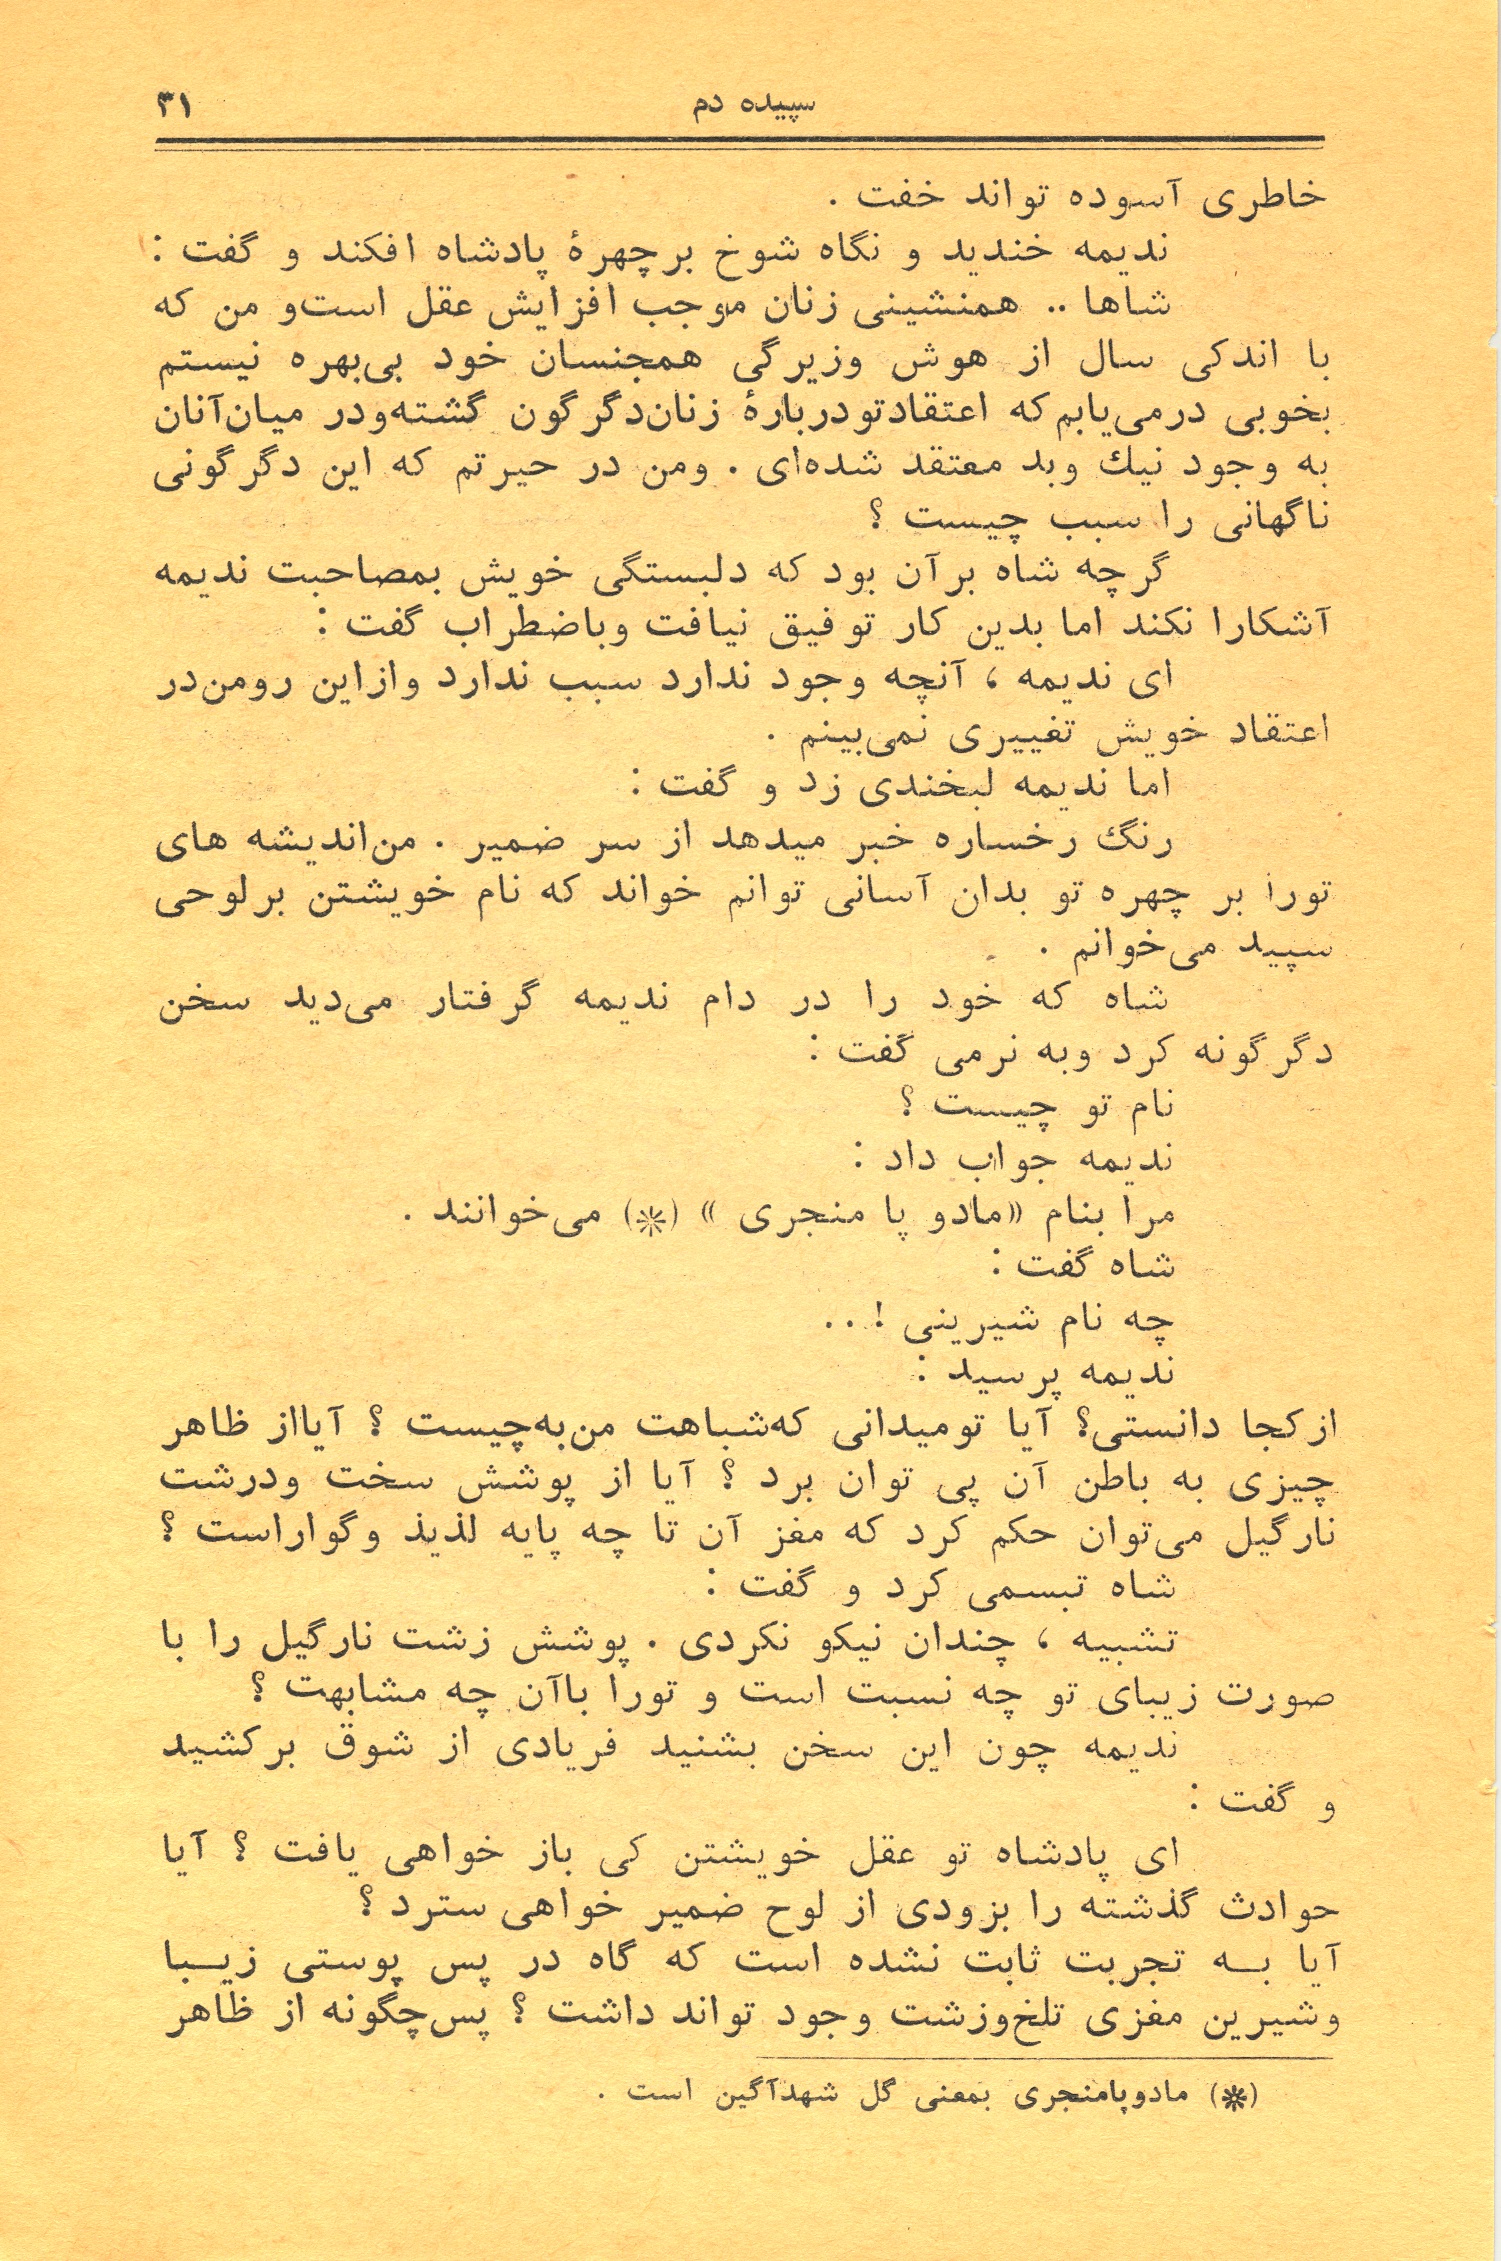 سپیده دم
۳۱
خاطری آسوده تواند خفت .
ندیمه خندید و نگاه شوخ برچهرهٔ پادشاه افکند و گفت :
شاها .. همنشینی زنان موجب افزایش عقل است‌و من که
با اندکی سال از هوش وزیرگی همجنسان خود بی‌بهره نیستم
بخوبی درمی‌یابم‌که اعتقادتودربارهٔ زنان‌دگرگون گشته‌ودر میان‌آنان
به وجود نیك وبد معتقد شده‌ای . ومن در حیرتم که این دگرگونی
ناگهانی را سبب چیست ؟
گرچه شاه برآن بود که دلبستگی خویش بمصاحبت ندیمه
آشکارا نکند اما بدین کار توفیق نیافت وباضطراب گفت :
ای ندیمه ، آنچه وجود ندارد سبب ندارد وازاین رومن‌در
اعتقاد خویش تغییری نمی‌بینم .
اما ندیمه لبخندی زد و گفت :
رنگ رخساره خبر میدهد از سر ضمیر . من‌اندیشه های
تورا بر چهره تو بدان آسانی توانم خواند که نام خویشتن برلوحی
سپید می‌خوانم .
شاه که خود را در دام ندیمه گرفتار می‌دید سخن
دگرگونه کرد وبه نرمی گفت :
نام تو چیست ؟
ندیمه جواب داد :
مرا بنام «مادو پا منجری » (*) می‌خوانند .
شاه گفت :
چه نام شیرینی ! . .
ندیمه پرسید :
ازکجا دانستی؟ آیا تومیدانی که‌شباهت من‌به‌چیست ؟ آیااز ظاهر
چیزی به باطن آن پی توان برد ؟ آیا از پوشش سخت ودرشت
نارگیل می‌توان حکم کرد که مغز آن تا چه پایه لذیذ وگواراست ؟
شاه تبسمی کرد و گفت :
تشبیه ، چندان نیکو نکردی . پوشش زشت نارگیل را با
صورت زیبای تو چه نسبت است و تورا باآن چه مشابهت ؟
ندیمه چون این سخن بشنید فریادی از شوق برکشید
و گفت :
ای پادشاه تو عقل خویشتن کی باز خواهی یافت ؟ آیا
حوادث گذشته را بزودی از لوح ضمیر خواهی سترد ؟
آیا بـه تجربت ثابت نشده است که گاه در پس پوستی زیـبا
وشیرین مغزی تلخ‌وزشت وجود تواند داشت ؟ پس‌چگونه از ظاهر
(*) مادوپامنجری بمعنی گل شهدآگین است .